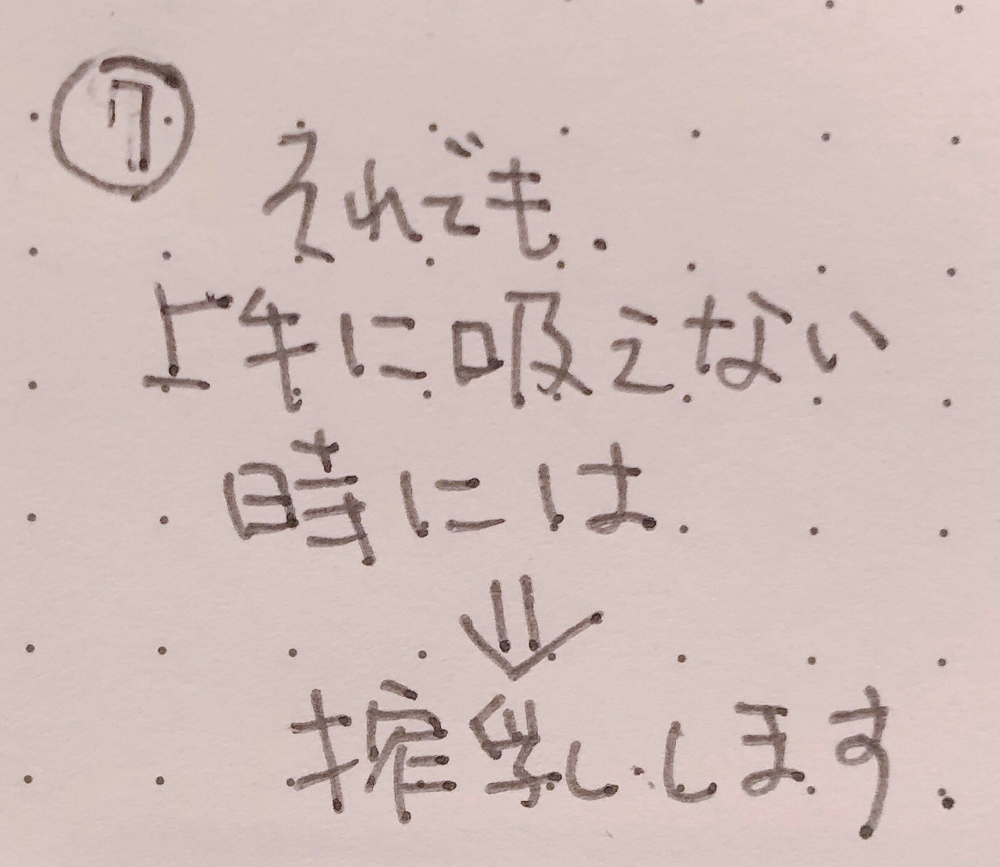 ⑦
それでも.
上手に吸えない
時には
⇓
搾乳します.